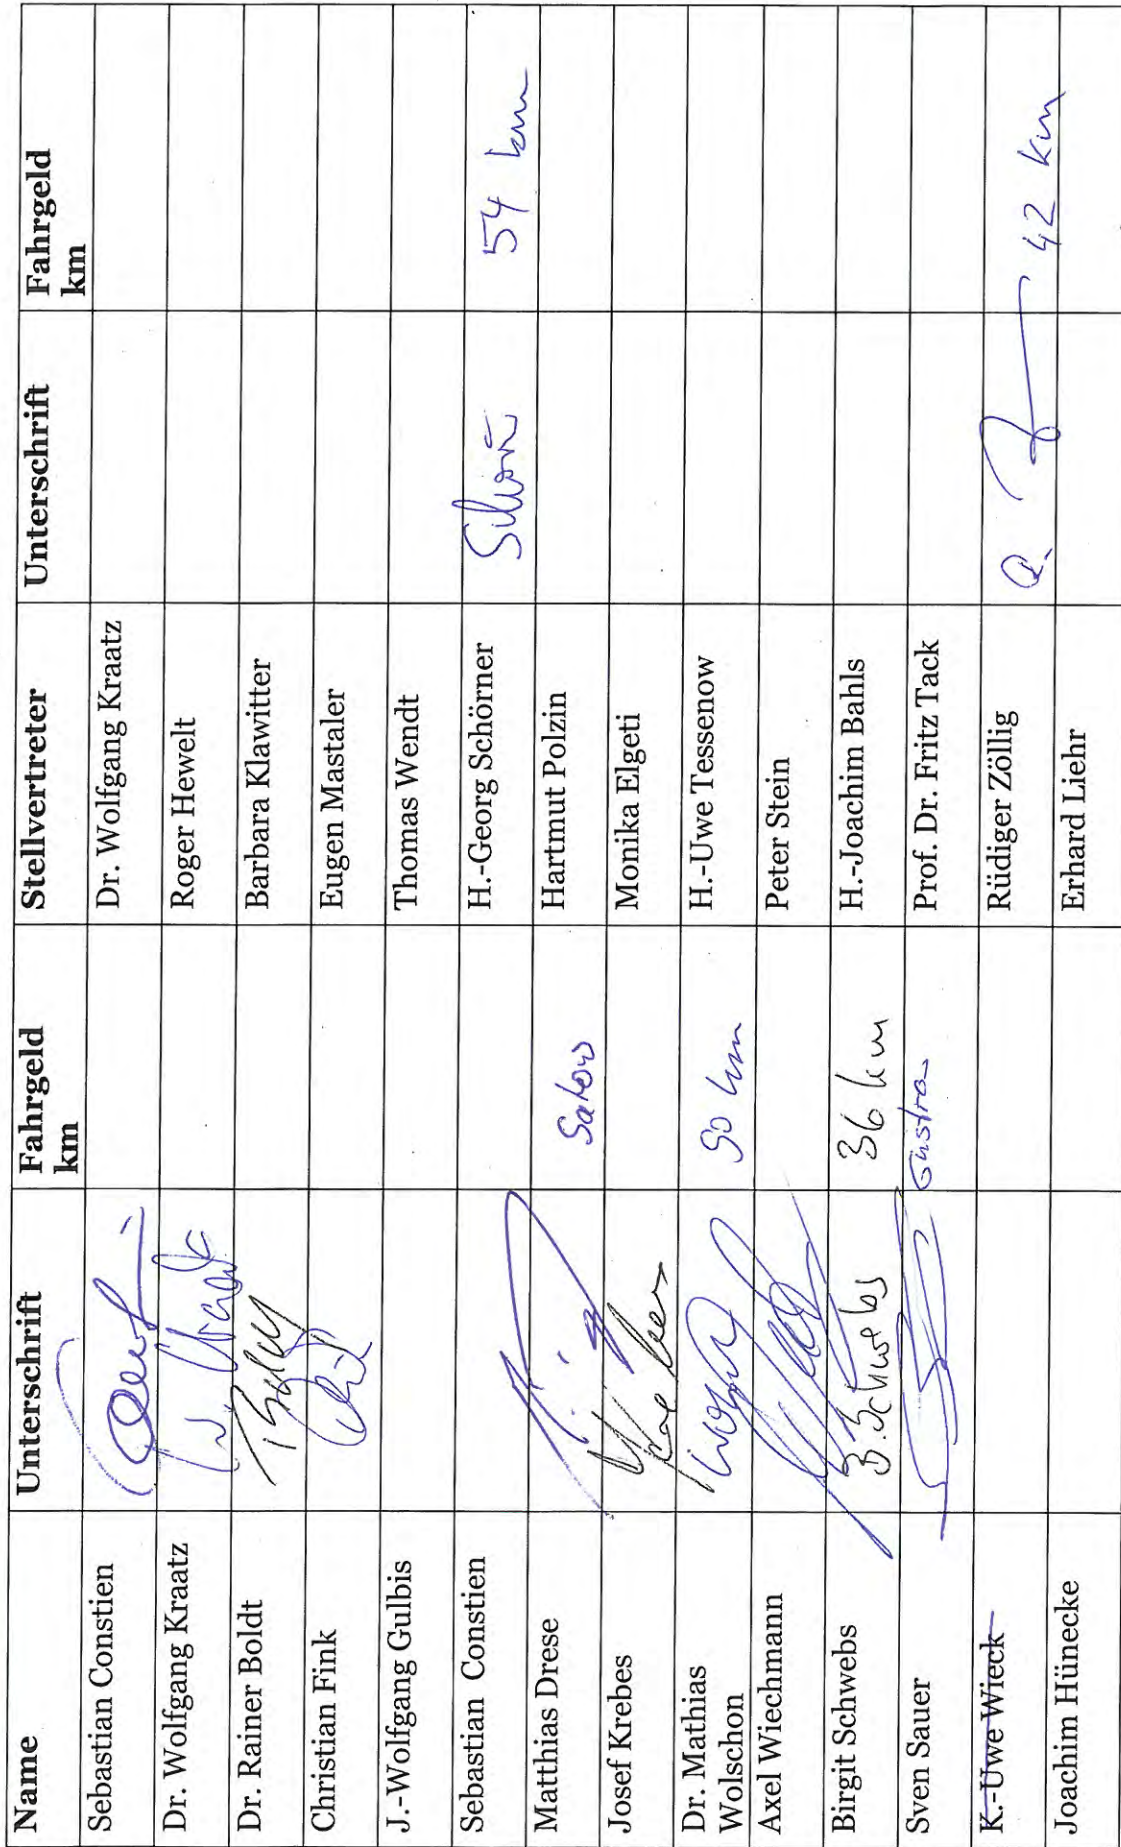 Name Unterschrift Fahrgeld km Stellvertreter Unterschrift Fahrgeld km
Sebastian Constien Dr. Wolfgang Kraatz
Dr. Wolfgang Kraatz Roger Hewelt
Dr. Rainer Boldt Barbara Klawitter
Christian Fink Eugen Mastaler
J.-Wolfgang Gulbis Thomas Wendt
Sebastian Constien H.-Georg Schörner 54 km
Matthias Drese Hartmut Polzin
Josef Krebes Monika Elgeti
Dr. Mathias
Wolschon 90 km H.-Uwe Tessenow
Axel Wiechmann Peter Stein
Birgit Schwebs B. Schwebs 36 km H.-Joachim Bahls
Sven Sauer Prof. Dr. Fritz Tack
K.-Uwe Wieck Rüdiger Zöllig 42 km
Joachim Hünecke Erhard Liehr